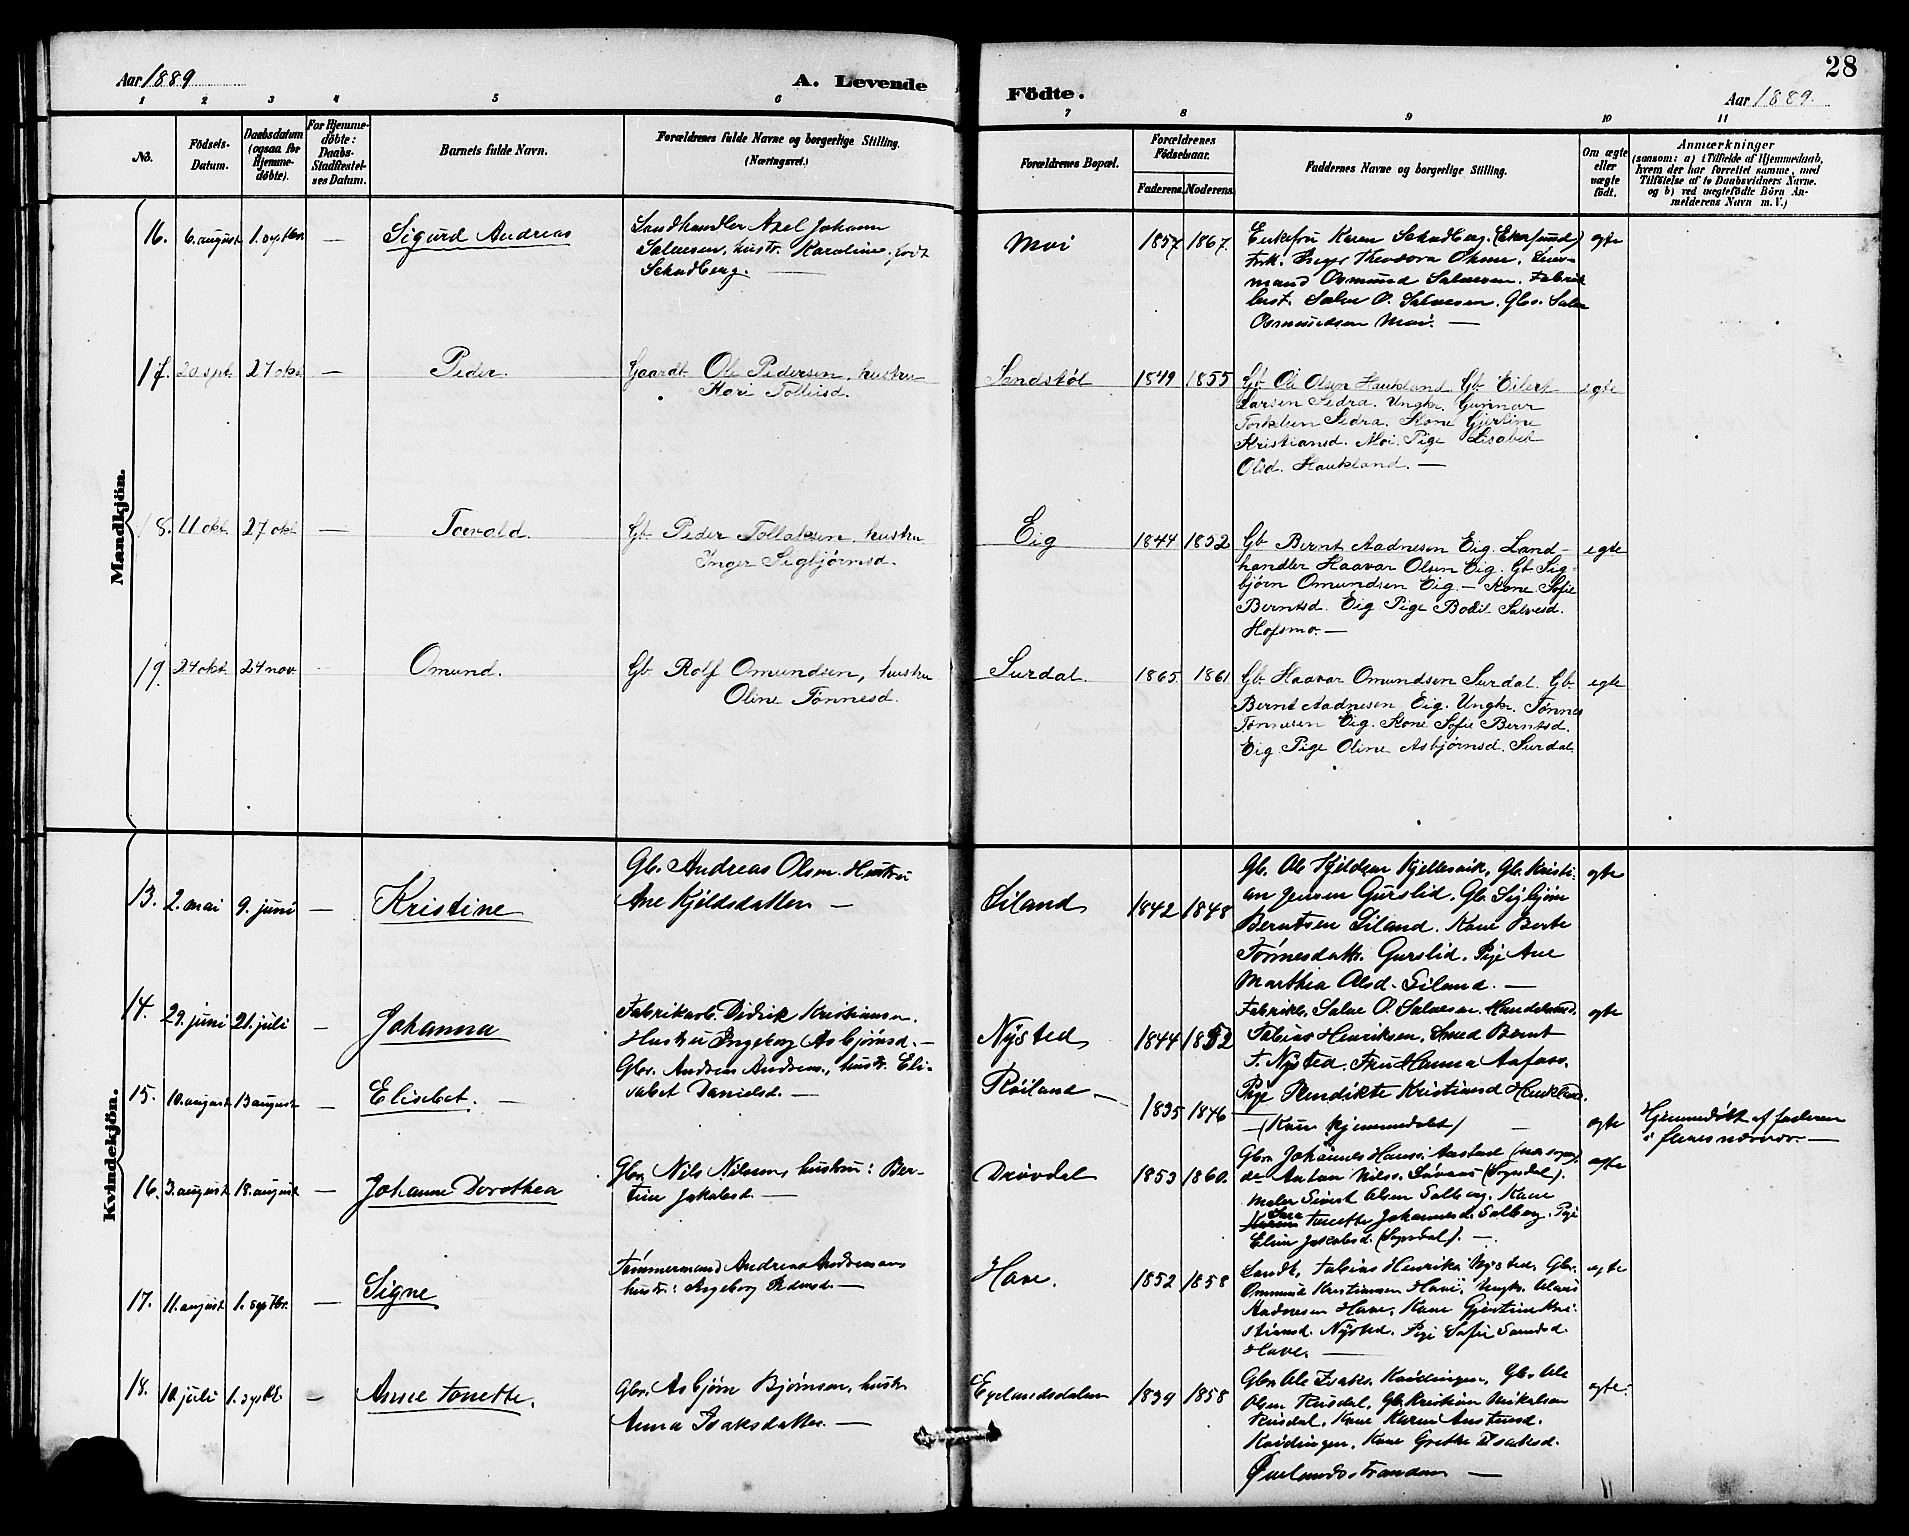 Aar 1889
A. Levende
Födte.
28
Aar 1889.
1 2 3 4 5 6 7 8 9 10 11
No.
Födsels-
Datum.
Daabsdatum
(ogsaa for
Hjemme-
döbte).
For Hjemme-
döbte:
Daabs-
Stadfæstel-
ses Datum.
Barnets fulde Navn.
Forældrenes fulde Navne og borgerlige Stilling.
(Næringsvei.)
Forældrenes Bopæl.
Forældrenes
Födselsaar.
Faderens. Moderens.
Faddernes Navne og borgerlige Stilling.
Om ægte
eller
uægte
födt.
Anmærkninger
(saasom: a) i Tilfælde af Hjemmedaab,
hvem der har forrettet samme, med
Tilföielse af to Daabsvidners Navne.
og b) ved uægtefödte Börn An-
melderens Navn m. V.)
Mandkjön.
16. 6. august 1. septbr — Sigurd Andreas
Landhandler Axel Johann
Salvesen, hustr. Karoline, født
Schadberg. —
Moi 1857. 1867.
Enkefru Karen Schadberg. (Ekersund)
Frk. Inger Theodora Ohme.
mand Osmund Salvesen. Fabrik
best. Salve O. Salvesen. Gbr. Salve
Osmundsen Moi. —
egte
17. 20 spt. 27 okt — Peder.
Gaardb. Ole Pedersen, hustru
Kari Tolleisd.
Sandstøl 1849 1855
Gb. Ole Olsen Haukland Gb. Eilert
Larsen Sedra. Ungkr. Gunnar
Torkelsen Sedra. Kone Gjertine
Kristiansd. Moi. Pige Lisabet
Olsd. Haukland. —
egte
18. 11 okt. 27 okt — Torvald.
Gb. Peder Tollaksen, hustru
Inger Sigbjørnsd.
Eig 1844 1852
Gb. Bernt Aadnesen Eig. Land-
handler Haavar Olsen Eig. Gb. Sig-
bjørn Omundsen Eig — Kone Sofie
Berntsd. Eig Pige Bodil Salvesd.
Hofsmo. —
egte
19. 24 okt. 24 nov. Omund.
Gb. Rolf Omundsen, hustru
Oline Tønnesd.
Surdal. 1865 1861
Gb. Haavar Omundsen Surdal. Gb.
Bernt Aadnesen Eig. Ungkr. Tønnes
Tønnesen Eig. Kone Sofie Berntsd.
Eig. Pige Oline Asbjørnsd. Surdal
egte
Kvindekjön.
13. 2. mai 9. juni — Kristine
Gbr. Andreas Olsen. Hustru
Ane Kjeldsdatter —
Eiland 1842 1848
Gbr. Ole Kjeldsen Kjellesvik, Gbr. Kristi-
an Jensen Gurslid. Gb. Sigbjørn
Berntsen Eiland. Kone Berte
Tønnesdattr. Gurslid. Pige Ane
Marthea Olsd. Eiland. —
egte
14. 29. juni 21. juli — Johanna
Fabrikarb. Didrik Kristiansen.
Hustru Ingeborg Asbjørnsd. —
Nysted 1844 1852
Fabrikb. Salve O. Salvesen.
Tobias Henriksen. Smed Bernt
T. Nysted. Fru Hanna Aafoss.
Pige Bendikte Kristiansd Haukland.
egte
15. 10. august 13 august — Elisebet. —
Gbr. Andreas Andreas., hustr. Eli-
sabet Danielsd. —
Røiland — 1835 1846
— (Kun hjemmedøbt) —
egte
Hjemmedøbt af faderen
i
16. 3. august 18. august — Johanne Dorothea
Gbr. Nils Nilsen, hustru: Ber-
tine Jakobsd. —
Drøvdal 1853 1860.
Gbr. Johannes Hans.
Anton Nils. (Sogndal).
maler Sivert Olsen Solberg. Kone
Sara
Tonette Johannesd. Solberg. Pige
Eline Jakobsd. (Sogndal). —
egte
17. 11. august 1. septbr. — Signe
Tømmermand Andreas Andreasen
hustr.: Ingeborg Pedersd. —
Have. 1852 1858
Landh. Tobias Henriks. Nysted, Gbr.
Ommund Kristiansen Have, Ungkr. Olaus
Aadnesen Have, Kone Gjertine Kri-
stiansd. Nysted. Pige Sofie
Have. —
egte
18. 10. juli 1. septbr — Anne Tonette.
Gbr. Asbjørn Bjørnsen, hustr.
Anna Isaksdatter. —
Egelandsdalen 1839 1858
Gbr. Ole Isaks. Kvidingen, Gbr. Ole
Olsen Rusdal, Gb. Kristian Mikalsen
Rusdal, Kone Karen Anstensd.
Kvidingen, Kone Grethe Isaksd.
—
egte.